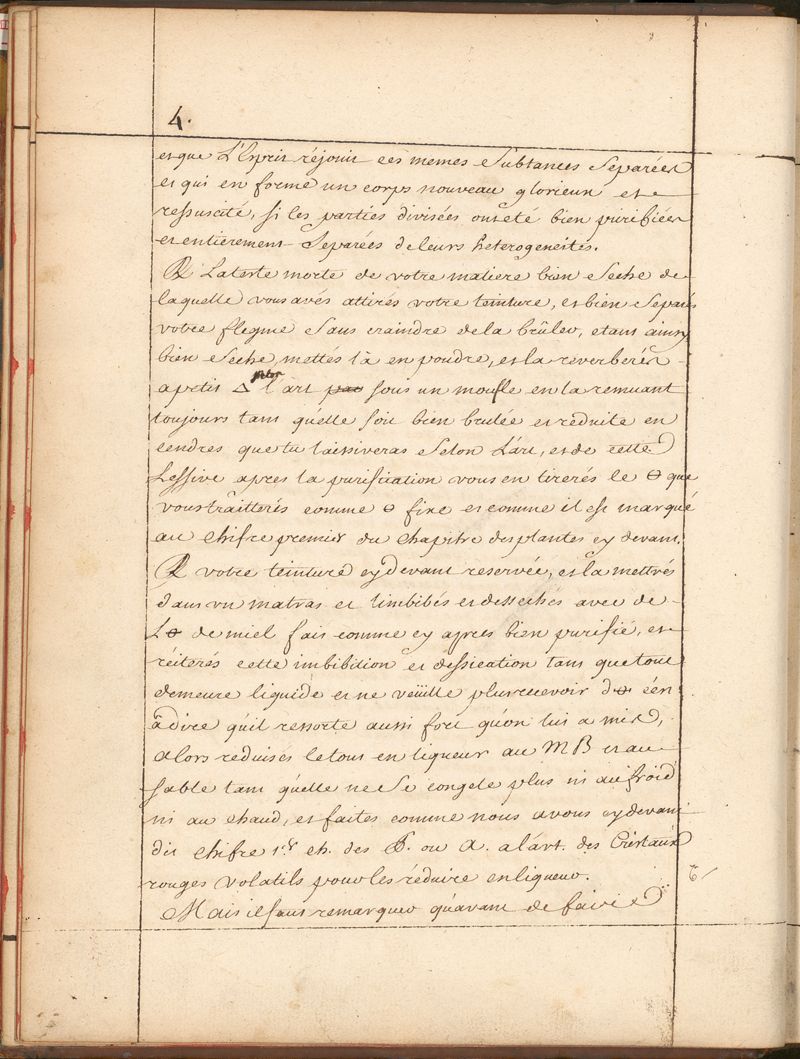 4.
et que L'Esprit réjouit ces memes Substances Separées
et qui en forme un corps nouveau glorieux et
ressuscité, si les parties divisées ont été bien purifiées
et entierement Separées de leurs heterogeneités.
℞ La terte morte de votre matiere bien Seche de
laquelle vous avés attirés votre teinture, et bien Separés
votre flegme Sans craindre de la brûler, etant ainsy
bien Seche, mettés là en poudre, et la reverberés
a petit △ selon l'art par sous un moufle en la remuant
toujours tant qu'elle soit bien brulée et reduite en
cendres que tu laissiveras Selon L'art, et de cette
Lessive apres la purification vous en tirerés le ⊖ que
vous traitterés comme ⊖ fixe et comme il est marqué
au chifre premier du chapitre des plantes cy devant.
℞ votre teinture cy devant reservée, et la mettrés
dans un matras et l'imbibés et dessechés avec de
L⊖ de miel fait comme cy apres bien purifié, et
réiterés cette imbibition et dessication tant que tout
demeure liquide et ne veüille plus recevoir d⊖ c'en
à dire qu'il ressorte aussi fort qu'on lui a mis,
alors reduisés le tout en liqueur au MB et au
sable tant qu'elle ne Se congele plus ni au froid
ni au chaud, et faites comme nous avons cy devant
dit chifre 1.er ch. des P. ou A. a l'art. des Cristaux
rouges volatils pour les réduire en liqueur.
Mais il faut remarquer qu'avant de faire